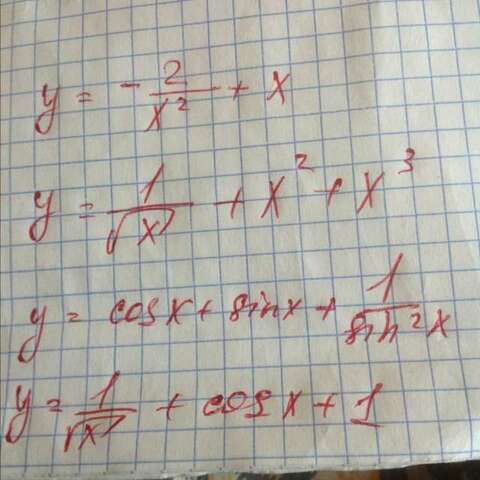 y = -2/x² + x
y = 1/√x + x² + x³
y = cosx + sinx + 1/sin²x
y = 1/√x + cosx + 1